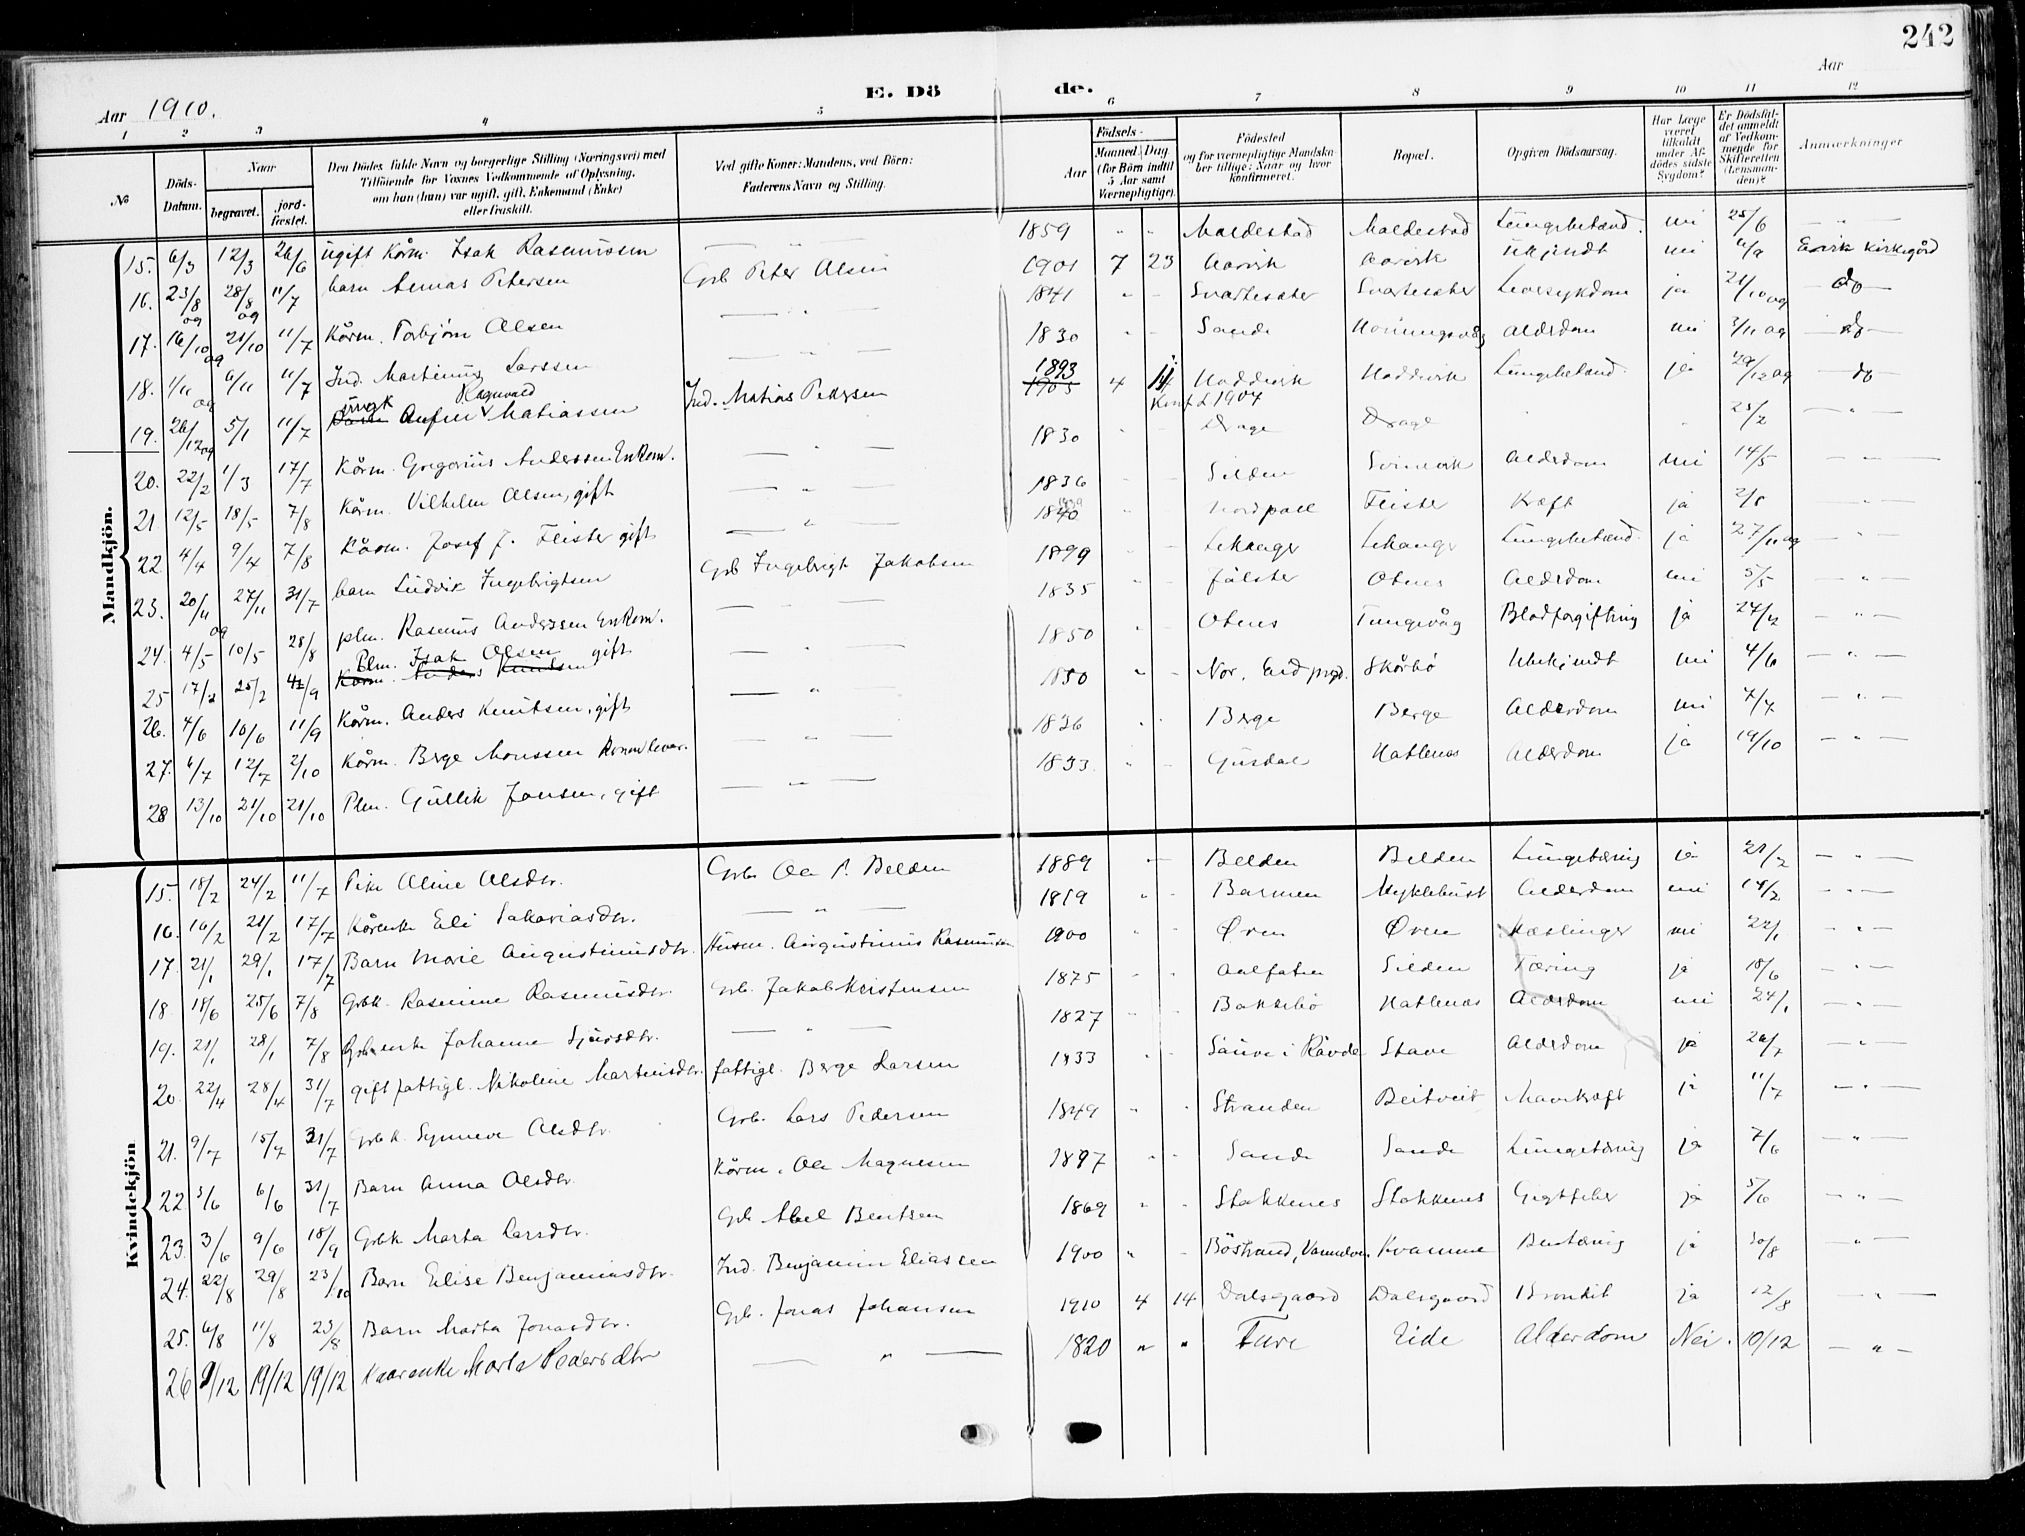 242
Aar 1910.
E. Dö de.
Aar
1 2 3 4 5 6 7 8 9 10 11 12
№
Döds-Datum.
Naar begravet. jordfæstet.
Den Dödes fulde Navn og borgerlige Stilling (Næringsvei) med Tilföiende for Voxnes Vedkommende af Oplysning, om han (hun) var ugift, gift, Enkemand (Enke) eller fraskilt.
Ved gifte Koner: Mandens, ved Börn: Faderens Navn og Stilling.
Födsels- Aar Maaned. Dag. (for Börn indtil 5 Aar samt Værnepligtige).
Födested og for værnepligtige Mandskaber tillige: Naar og hvor konfirmeret.
Bopæl.
Opgiven Dödsaarsag.
Har Læge været tilkaldt under Afdödes sidste Sygdom?
Er Dödsfaldet anmeldt af Vedkommende for Skifteretten (Lensmanden)?
Anmærkninger
Mandkjön.
15. 6/3 12/3 26/6 ugift Kårm. Isak Rasmussen — " — 1859 " " Maldestad Maldestad Lungebetænd. nei 25/6 — " —
16. 23/8 og 28/8 og 11/7 barn Annas Petersen Grb Peter Olsen 1901 7 23 Aarvik Aarvik Ukjendt nei 6/9 Ervik Kirkegård
17. 16/10 og 21/10 11/7 Kårm. Torbjørn Olsen — " — 1841 " " Svartesæter Svartesæter Leversykdom ja 21/10 09 do
18. 1/11 og 6/11 11/7 Ind. Martinus Larssen — " — 1830 " " Sande Honningsvåg Alderdom nei 3/11 09 do
19. 26/12 09 5/1 11/7 ungk Ragnvald Matiassen Ind. Matias Pedersen 1893 4 14 Haddevik Konf. 1907 Haddevik Lungebetænd. ja 29/12 09 do
20. 22/2 1/3 17/7 Kårm. Gregorius Anderssen Enkem. — " — 1830 " " Drage Drage 25/2 — " —
21 12/5 18/5 7/8 Kårm. Vilhelm Olsen, gift — " — 1836 " " Silden Svinevik Alderdom nei 14/5 — " —
22 4/4 9/4 7/8 Kårm. Josef J. Fleister gift — " — 1840 " " Nordpoll Fleister Kræft ja 2/6 — " —
23. 20/11 og 27/11 31/7 barn Ludvik Ingebrigtsen Grb Ingebrigt Jakobsen 1899 " " Lekanger Lekanger Lungebetænd. ja 27/11 09 — " —
24. 4/5 10/5 28/8 plm. Rasmus Anderssen Enkem. — " — 1835 " " Jølster Otnes Alderdom nei 5/5 — " —
25 17/2 25/2 4/9 Plm. Isak Olsen gift Kårm. Anders Knutsen — " — 1850 " " Otnes Tungevåg Blodforgiftning ja 24/2 — " —
26. 4/6 10/6 11/9 Kårm. Anders Knutsen, gift — " — 1850 " " Nor, Eid prgd. Skårbø Ubekjendt nei 4/6 — " —
27. 6/7 12/7 2/10 Kårm. Berge Monssen — " — 1836 " " Berge Berge Alderdom nei 7/7 — " —
28 13/10 21/10 21/10 Plm. Gullik Jonsen, gift — " — 1833 " " Gusdal Hatlenes Alderdom ja 19/10 — " —
Kvindekjön
15. 18/2 24/2 11/7 Pike Oline Olsdtr. Grb. Ole P. Belden 1889 " — Belden Belden Lungetæring ja 21/2 — " —
16. 16/2 21/2 17/7 Kårenke Eli Sakariasdtr. — " — 1819 " " Barmen Myklebust Alderdom nei 18/2 — " —
17. 21/1 29/1 17/7 Barn Marie Augustinusdtr. Husm. Augustinus Rasmussen 1900 " " Øren Øren Mæslinger nei 22/1 — " —
18. 18/6 25/6 7/8 Grbk. Rasmine Rasmusdtr. Grb. Jakob Kristensen 1875 " " Silden Tæring ja 18/6 — " —
19. 21/1 28/1 7/8 Grbenke Johanne Sjursdtr. — " — 1827 " " Bakkebø Hatlenes Alderdom nei 24/1 — " —
20. 22/4 28/4 31/7 gift fattigl. Nikoline Martinsdtr. fattigl. Berge Larsen 1833 " " Sauve i Røvde Stave Alderdom ja 26/7 — " —
21. 9/7 15/7 31/7 Grbk. Synneve Olsdtr. Grb. Lars Pedersen 1849 " " Stranden Beitveit Mavekræft ja 11/7 — " —
22 3/6 6/6 31/7 Barn Anna Olsdtr. Kårm. Ole Magnesen 1897 " " Sande Sande Lungetæring ja 7/6 — " —
23. 3/6 9/6 18/9 Grbk Marta Larsdtr. Grb Abel Bentsen 1869 " " Stokkenes Stokkenes Gigtfeber ja 5/6 — " —
24. 22/8 29/8 23/10 Barn Elise Benjaminsdtr. Ind. Benjamin Eliassen 1900 " " Böstrand, Vannelven Kvamme Bentæring ja 30/8 — " —
25. 6/8 11/8 23/8 Barn Marta Jonasdtr. Grb. Jonas Johansen 1910 4 14 Dalsgaard Dalsgaard Bronkit ja 12/8 — " —
26 9/12 19/12 19/12 Kaarenke Marta Pedersdtr — " — 1820 " " Fure Eide Alderdom Nei. 10/12 — " —